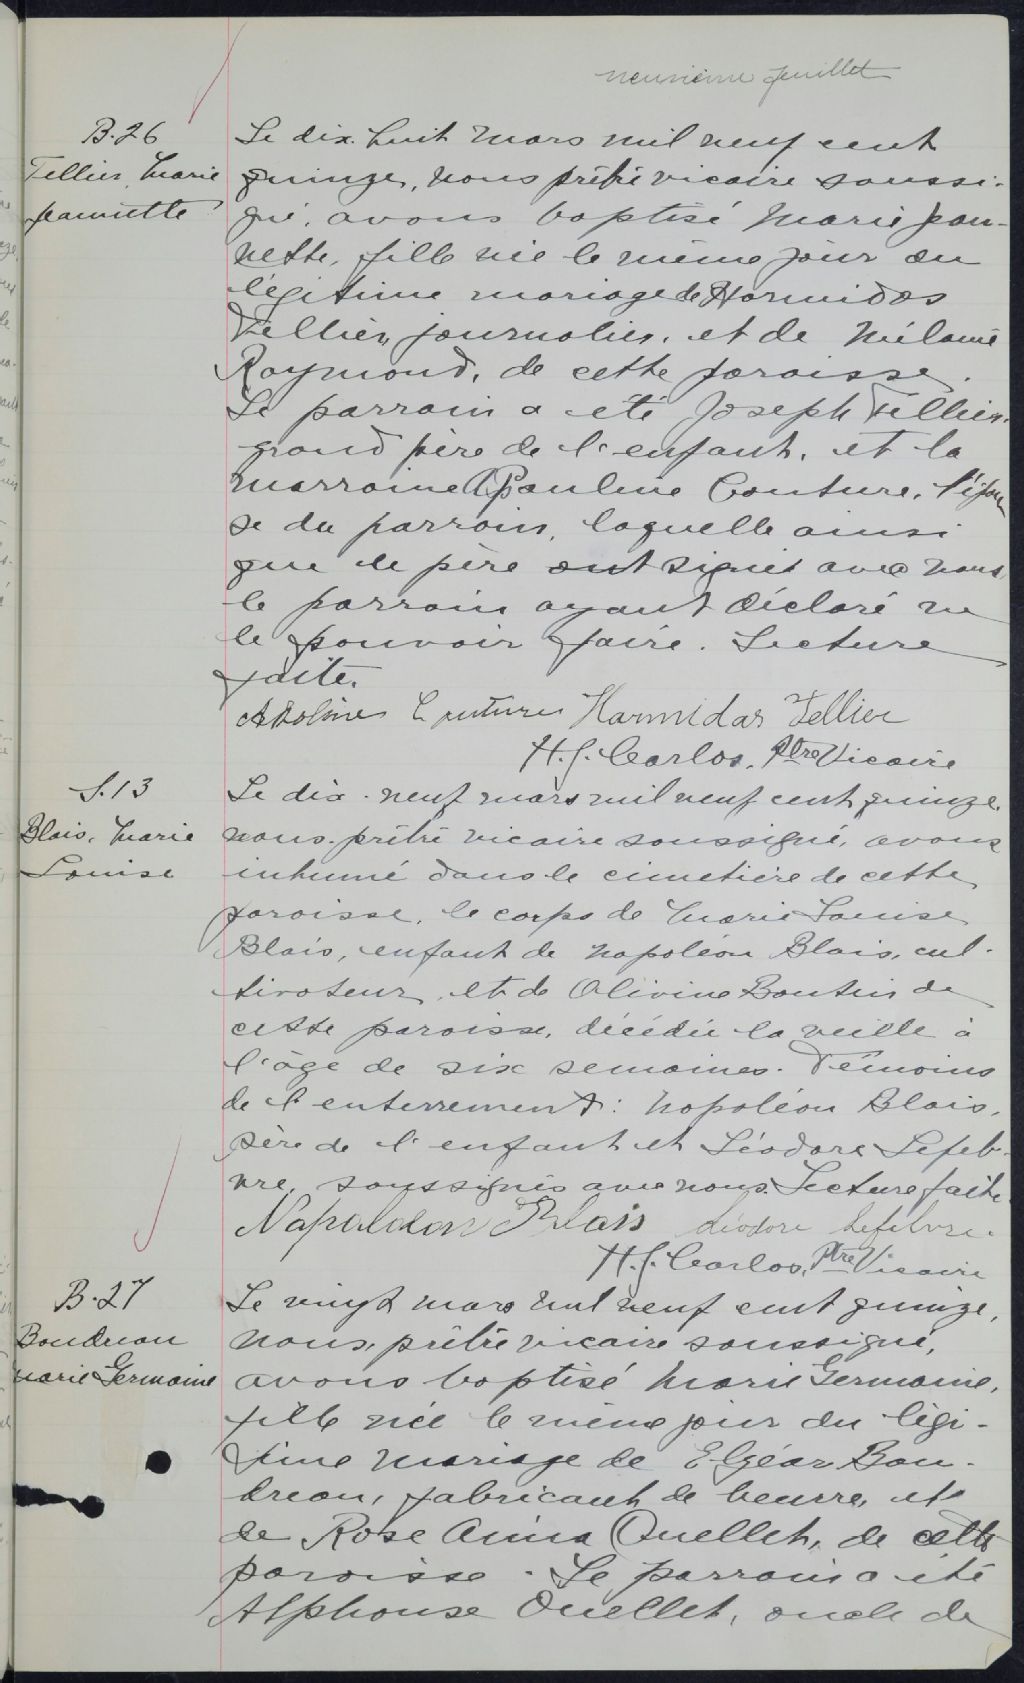 neuvième feuillet
B.26
Tellier, Marie
Jeannette
Le dix-huit mars mil neuf cent
quinze, nous prêtre vicaire soussi-
gné, avons baptisé Marie Jean-
nette, fille née le même jour du
légitime mariage de Hormidas
Tellier, journalier, et de Mélanie
Raymond, de cette paroisse.
Le parrain a été Joseph Tellier,
grand père de l'enfant, et la
marraine Pauline Couture, l'épou
se du parrain, laquelle ainsi
que le père ont signé avec nous,
le parrain ayant déclaré ne
le pouvoir faire. Lecture
faite.
Couture Harmidas Tellier
H. J. Carlos, Ptre Vicaire
S.13
Blais, Marie
Louise
Le dix-neuf mars mil neuf cent quinze,
nous, prêtre vicaire soussigné, avons
inhumé dans le cimetière de cette
paroisse, le corps de Marie Louise
Blais, enfant de Napoléon Blais, cul-
tivateur, et de Olivine Boutin de
cette paroisse, décédée la veille à
l'âge de six semaines. Témoins
de l'enterrement: Napoléon Blais,
père de l'enfant et Léodore Lefeb-
vre, soussignés avec nous. Lecture faite.
Napoleon Blais Léodore Lefebvre.
H. J. Carlos, Ptre Vicaire
B.27
Boudreau
Marie Germaine
Le vingt mars mil neuf cent quinze,
nous, prêtre vicaire soussigné,
avons baptisé Marie Germaine,
fille née le même jour du légi-
time mariage de Elgéar Bou-
dreau, fabricant de beurre, et
de Rose Anna Ouellet, de cette
paroisse. Le parrain a été
Alphonse Ouellet, oncle de